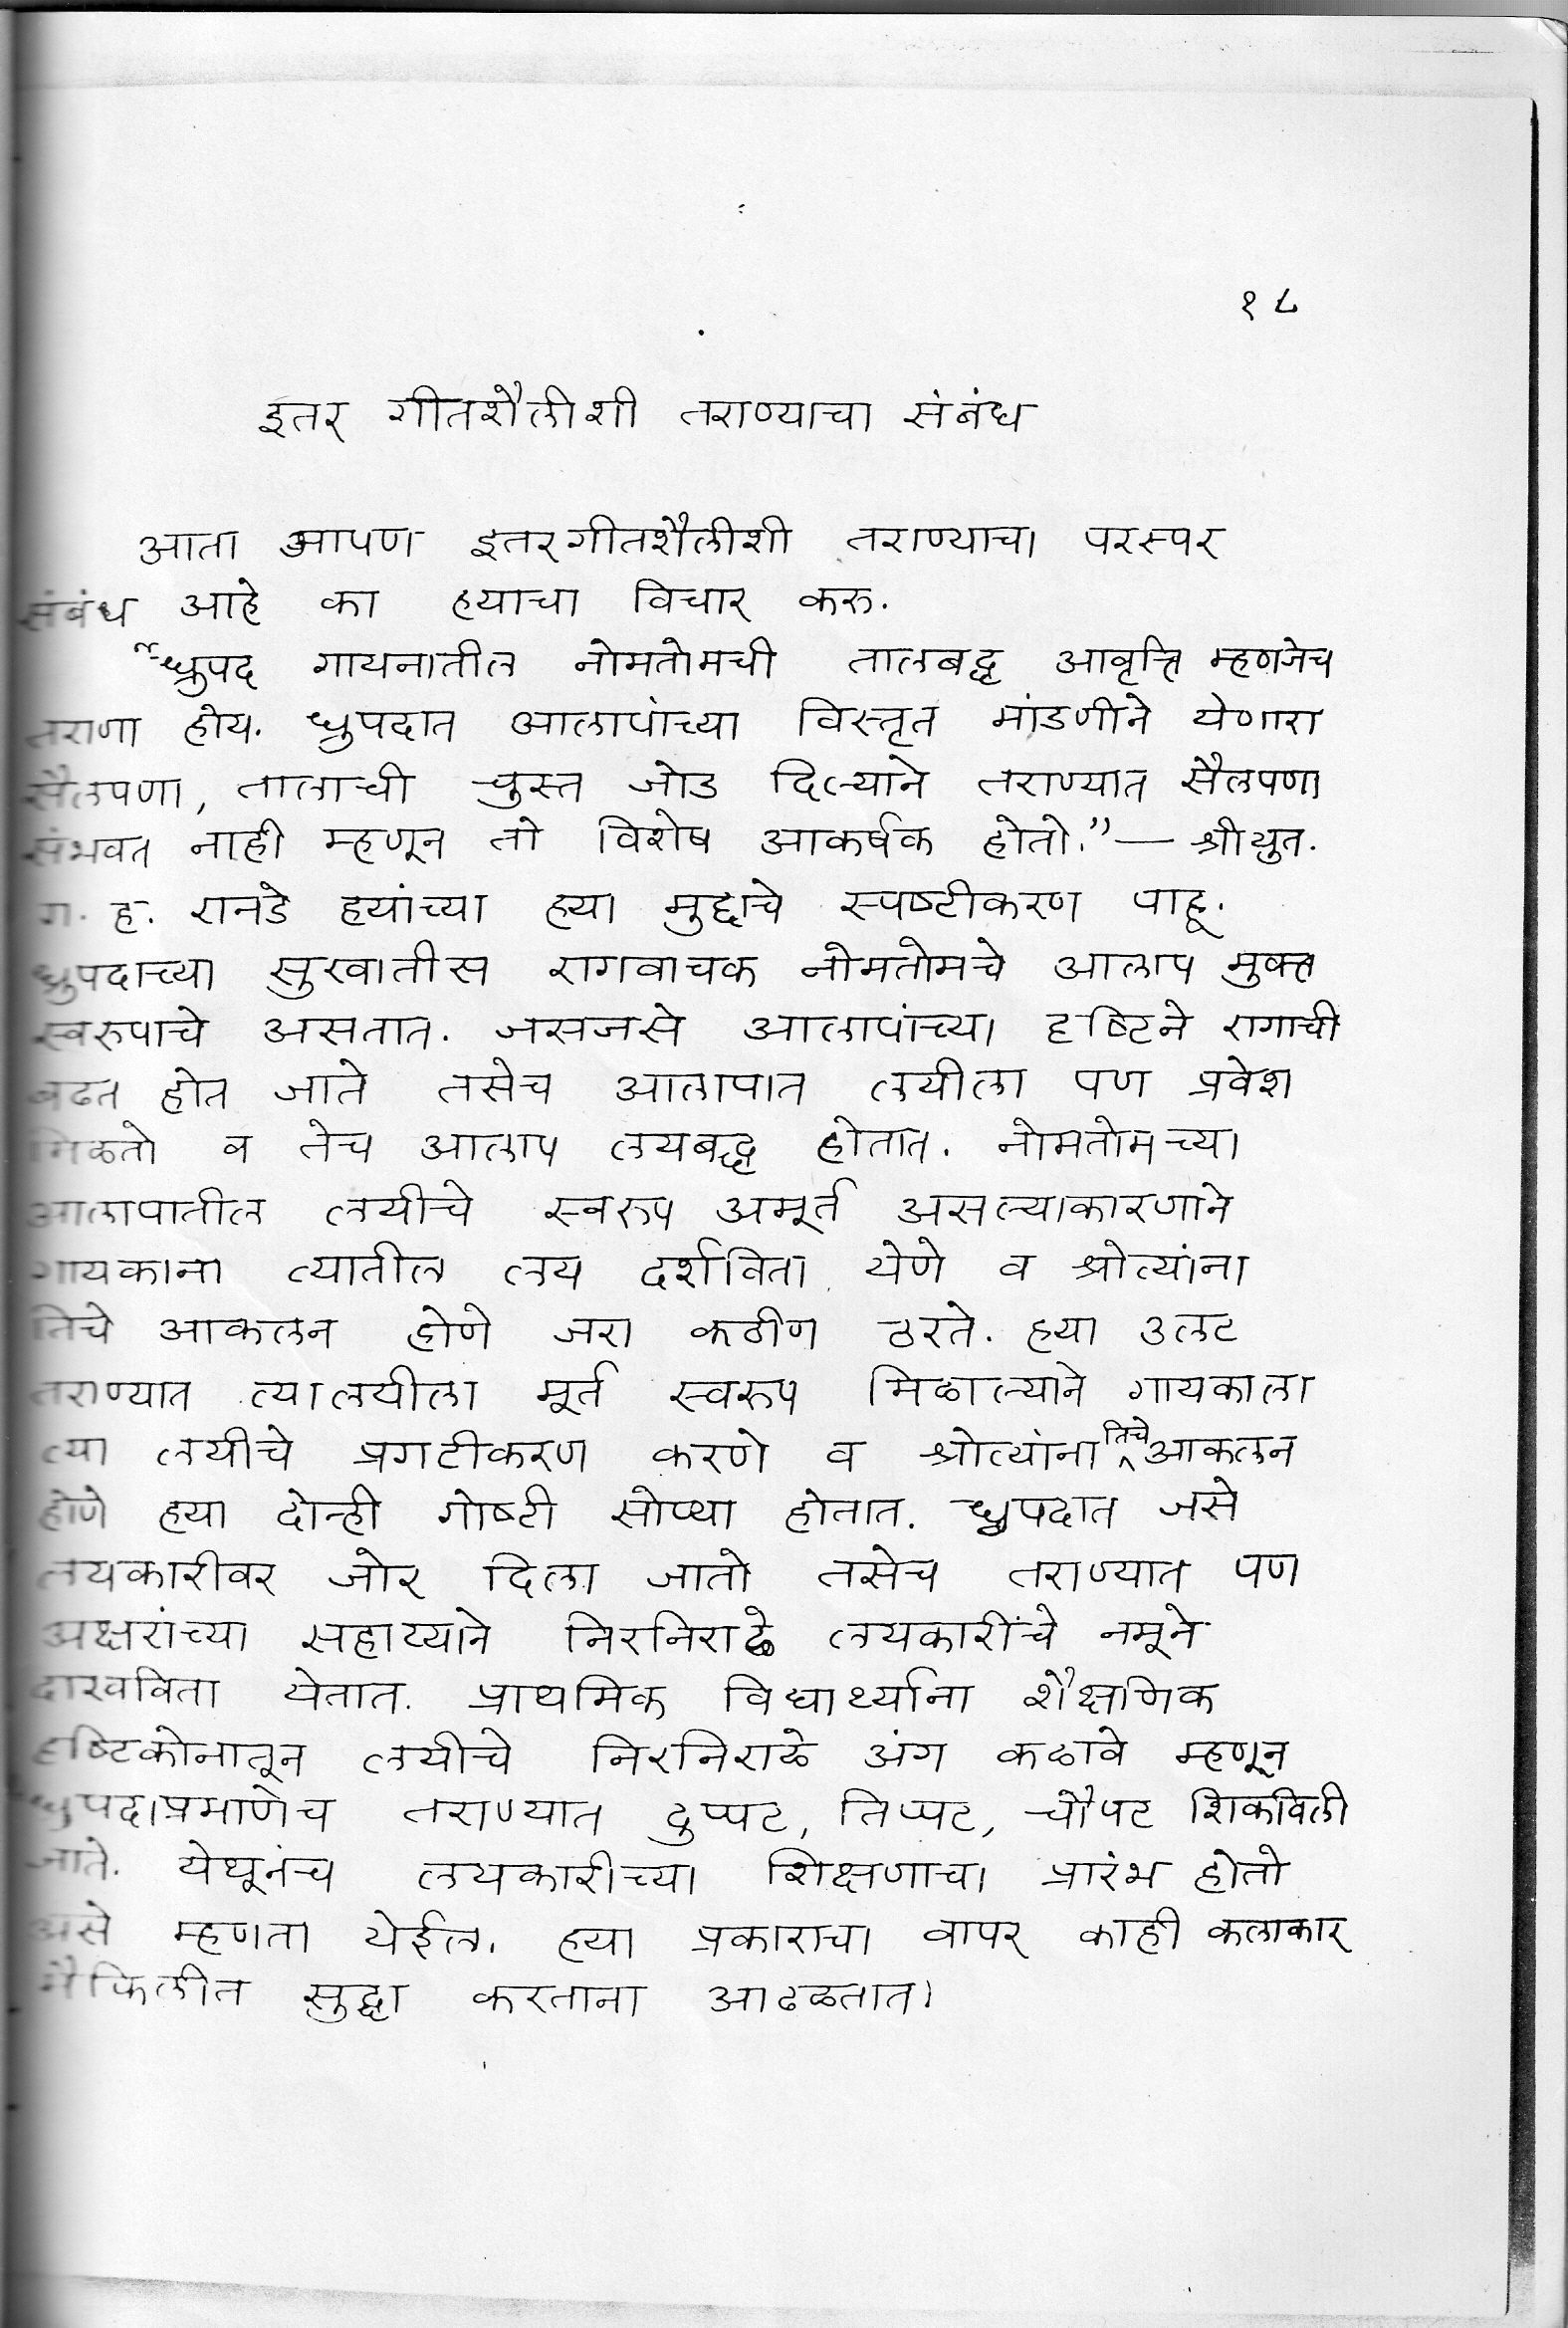 १८
इतर गीतशैलीशी तराण्याचा संबंध
आता आपण इतरगीतशैलीशी तराण्याचा परस्पर
संबंध आहे का हयाचा विचार करू.
"ध्रुपद गायनातील नोमतोमची तालबद्ध आवृत्ति म्हणजेच
तराणा होय. ध्रुपदात आलापांच्या विस्तृत मांडणीने येणारा
सैलपणा, तालाची चुस्त जोड दिल्याने तराण्यात सैलपणा
संभवत नाही म्हणून तो विशेष आकर्षक होतो." — श्रीयुत.
ग. ह. रानडे हयांच्या हया मुद्दाचे स्पष्टीकरण पाहू.
ध्रुपदाच्या सुरवातीस रागवाचक नोमतोमचे आलाप मुक्त
स्वरुपाचे असतात. जसजसे आलापांच्या दृष्टिने रागाची
बढत होत जाते तसेच आलापात लयीला पण प्रवेश
मिळतो व तेच आलाप लयबद्ध होतात. नोमतोमच्या
आलापातील लयीचे स्वरुप अमूर्त असल्याकारणाने
गायकाना त्यातील लय दर्शविता येणे व श्रोत्यांना
तिचे आकलन होणे जरा कठीण ठरते. हया उलट
तराण्यात त्यालयीला मूर्त स्वरुप मिळाल्याने गायकाला
त्या लयीचे प्रगटीकरण करणे व श्रोत्यांना तिचे आकलन
होणे हया दोन्ही गोष्टी सोप्या होतात. ध्रुपदात जसे
लयकारीवर जोर दिला जातो तसेच तराण्यात पण
अक्षरांच्या सहाय्याने निरनिराळे लयकारींचे नमूने
दाखविता येतात. प्राथमिक विद्यार्थ्याना शैक्षणिक
दृष्टिकोनातून लयीचे निरनिराळे अंग कळावे म्हणून
ध्रुपदाप्रमाणेच तराण्यात दुप्पट, तिप्पट, चौपट शिकविली
जाते. येथूनंच लयकारीच्या शिक्षणाचा प्रारंभ होतो
असे म्हणता येईल. हया प्रकाराचा वापर काही कलाकार
मैफिलीत सुद्धा करताना आढळतात।